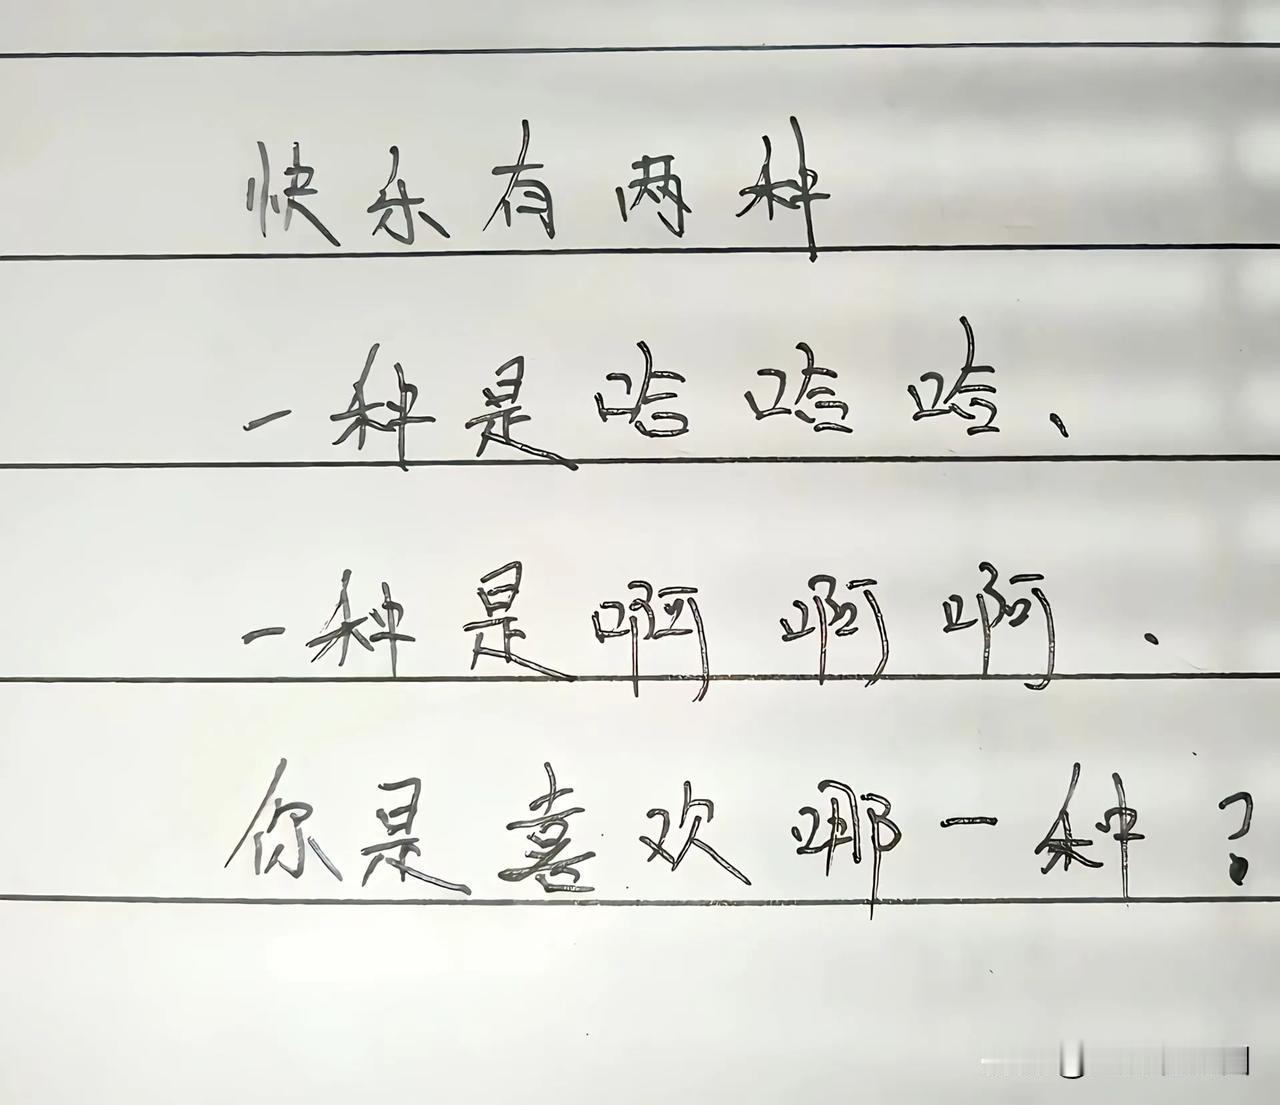 快乐有两种
一种是哈哈哈、
一种是啊啊啊.
你是喜欢哪一种?